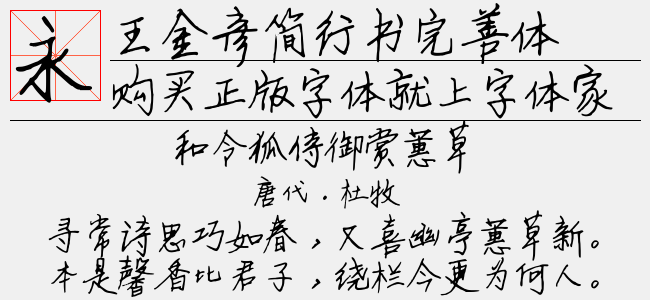 永
王金彦简行书完善体
购买正版字体就上字体家
和令狐侍御赏蕙草
唐代．杜牧
寻常诗思巧如春，又喜幽亭蕙草新。
本是馨香比君子，绕栏今更为何人。